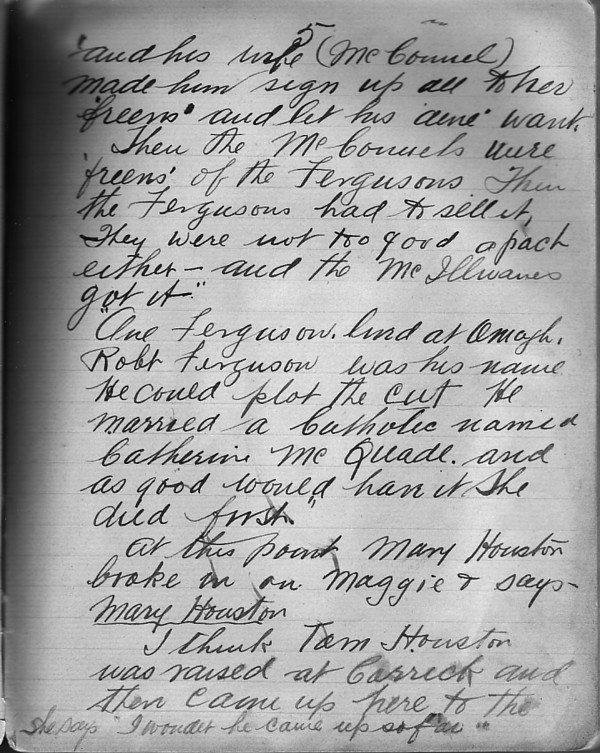 5
and his wife (McConnel)
made him sign up all to her
'freens' and let his 'aine' want.
Then the McConnels were
'freens' of the Fergusons Then
the Fergusons had to sell it,
They were not too good a pack
either - and the McIllwaines
got it."
"One Ferguson. lived at Omagh.
Robt Ferguson was his name
He could plot the cut He
married a Catholic named
Catherine McQuade. and
as good would have it She
died first."
At this point Mary Houston
broke in on Maggie & says-
Mary Houston
I think Tom Houston
was raised at Carrick and
then came up here to the
She says "I wonder he came up so far"